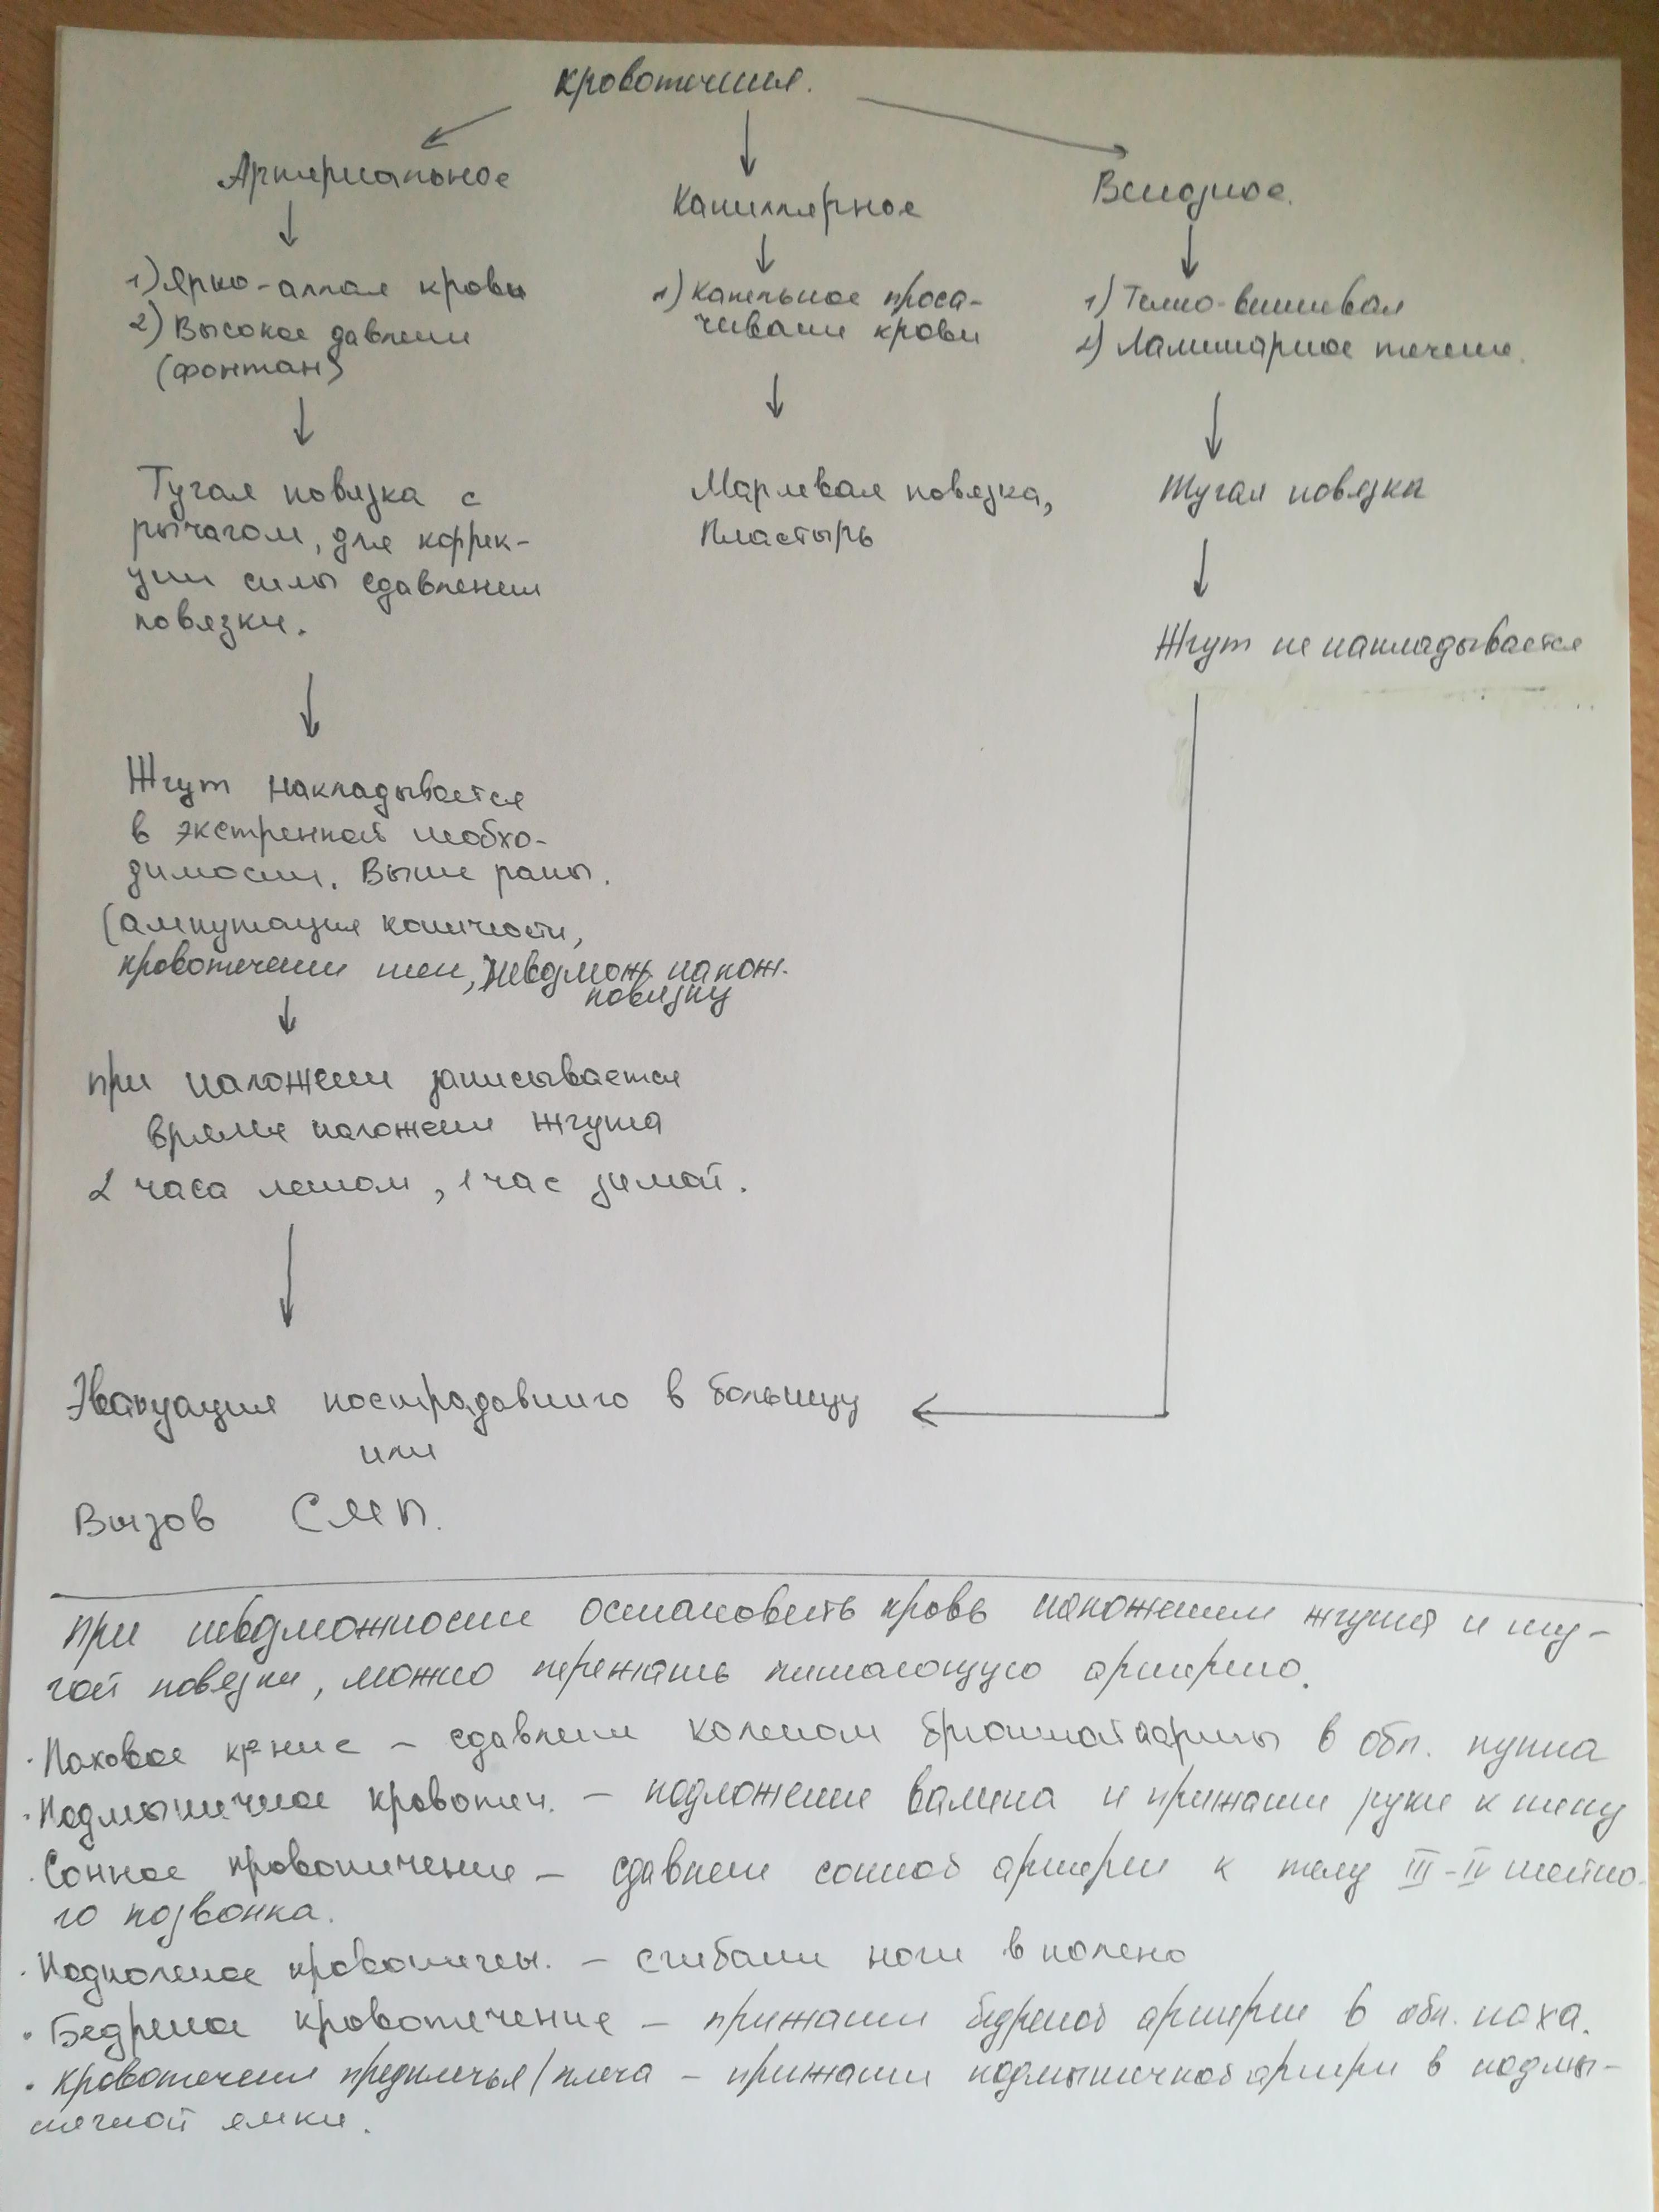 кровотечения.
Артериальное
Капиллярное
Венозное.
1) Ярко-алая кровь
2) Высокое давление
(фонтан)
1) Капельное проса-
чивание крови
1) Темно-вишневая
2) Ламинарное течение.
Тугая повязка с
рычагом, для коррек-
ции силы сдавления
повязки.
Марлевая повязка,
Пластырь
Тугая повязка
Жгут не накладывается
Жгут накладывается
в экстренной необхо-
димости. Выше раны.
(ампутация конечности,
кровотечение шеи, невозмож. налож.
повязку
при наложении записывается
время наложения жгута
2 часа летом, 1 час зимой.
Эвакуация пострадавшего в больницу
или
Вызов СМП.
При невозможности остановить кровь наложением жгута и ту-
гой повязки, можно пережать питающую артерию.
· Паховое кр-ние – сдавление коленом брюшной аорты в обл. пупка
· Подмышечное кровотеч. – подложение валика и прижатие руки к телу
· Сонное кровотечение – сдавление сонной артерии к телу III-IV шейно-
го позвонка.
· Подколеное кровотечен. – сгибание ноги в колено
· Бедреное кровотечение – прижатие бедреной артерии в обл. паха.
· кровотечения предплечья/плеча – прижатие подмышечной артери в подмы-
шечной ямки.